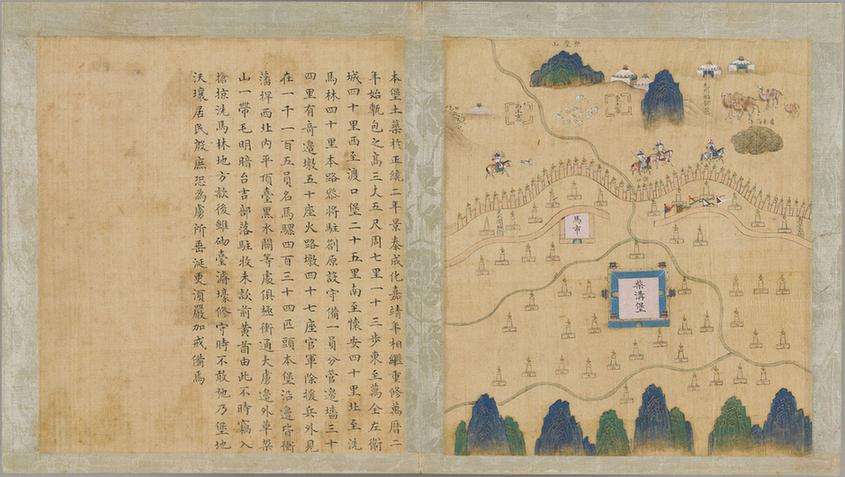 本堡土築於正統二年景泰成化嘉靖年相繼重修萬曆二
年始甎包之高三丈五尺周七里一十三步東至萬全左衛
城四十里西至渡口堡二十五里南至懷安四十里北至洗
馬林四十里本路叅將駐劄原設守備一員分管邊墻三十
四里有奇邊墩五十座火路墩四十七座官軍除援兵外見
在一千一百五員名馬騾四百三十四匹頭本堡沿邊皆衝
藩捍西北內平頂臺黑水關等處俱極衝通大虜邊外
山一帶毛明暗台吉部落駐牧未款前黃酋由此不時竊入
搶掠洗馬林地方款後雖砌臺濬壕修守時不敢弛乃堡地
沃壤居民殷庶恐為虜所垂涎更須嚴加戒備焉
馬市
柴溝堡